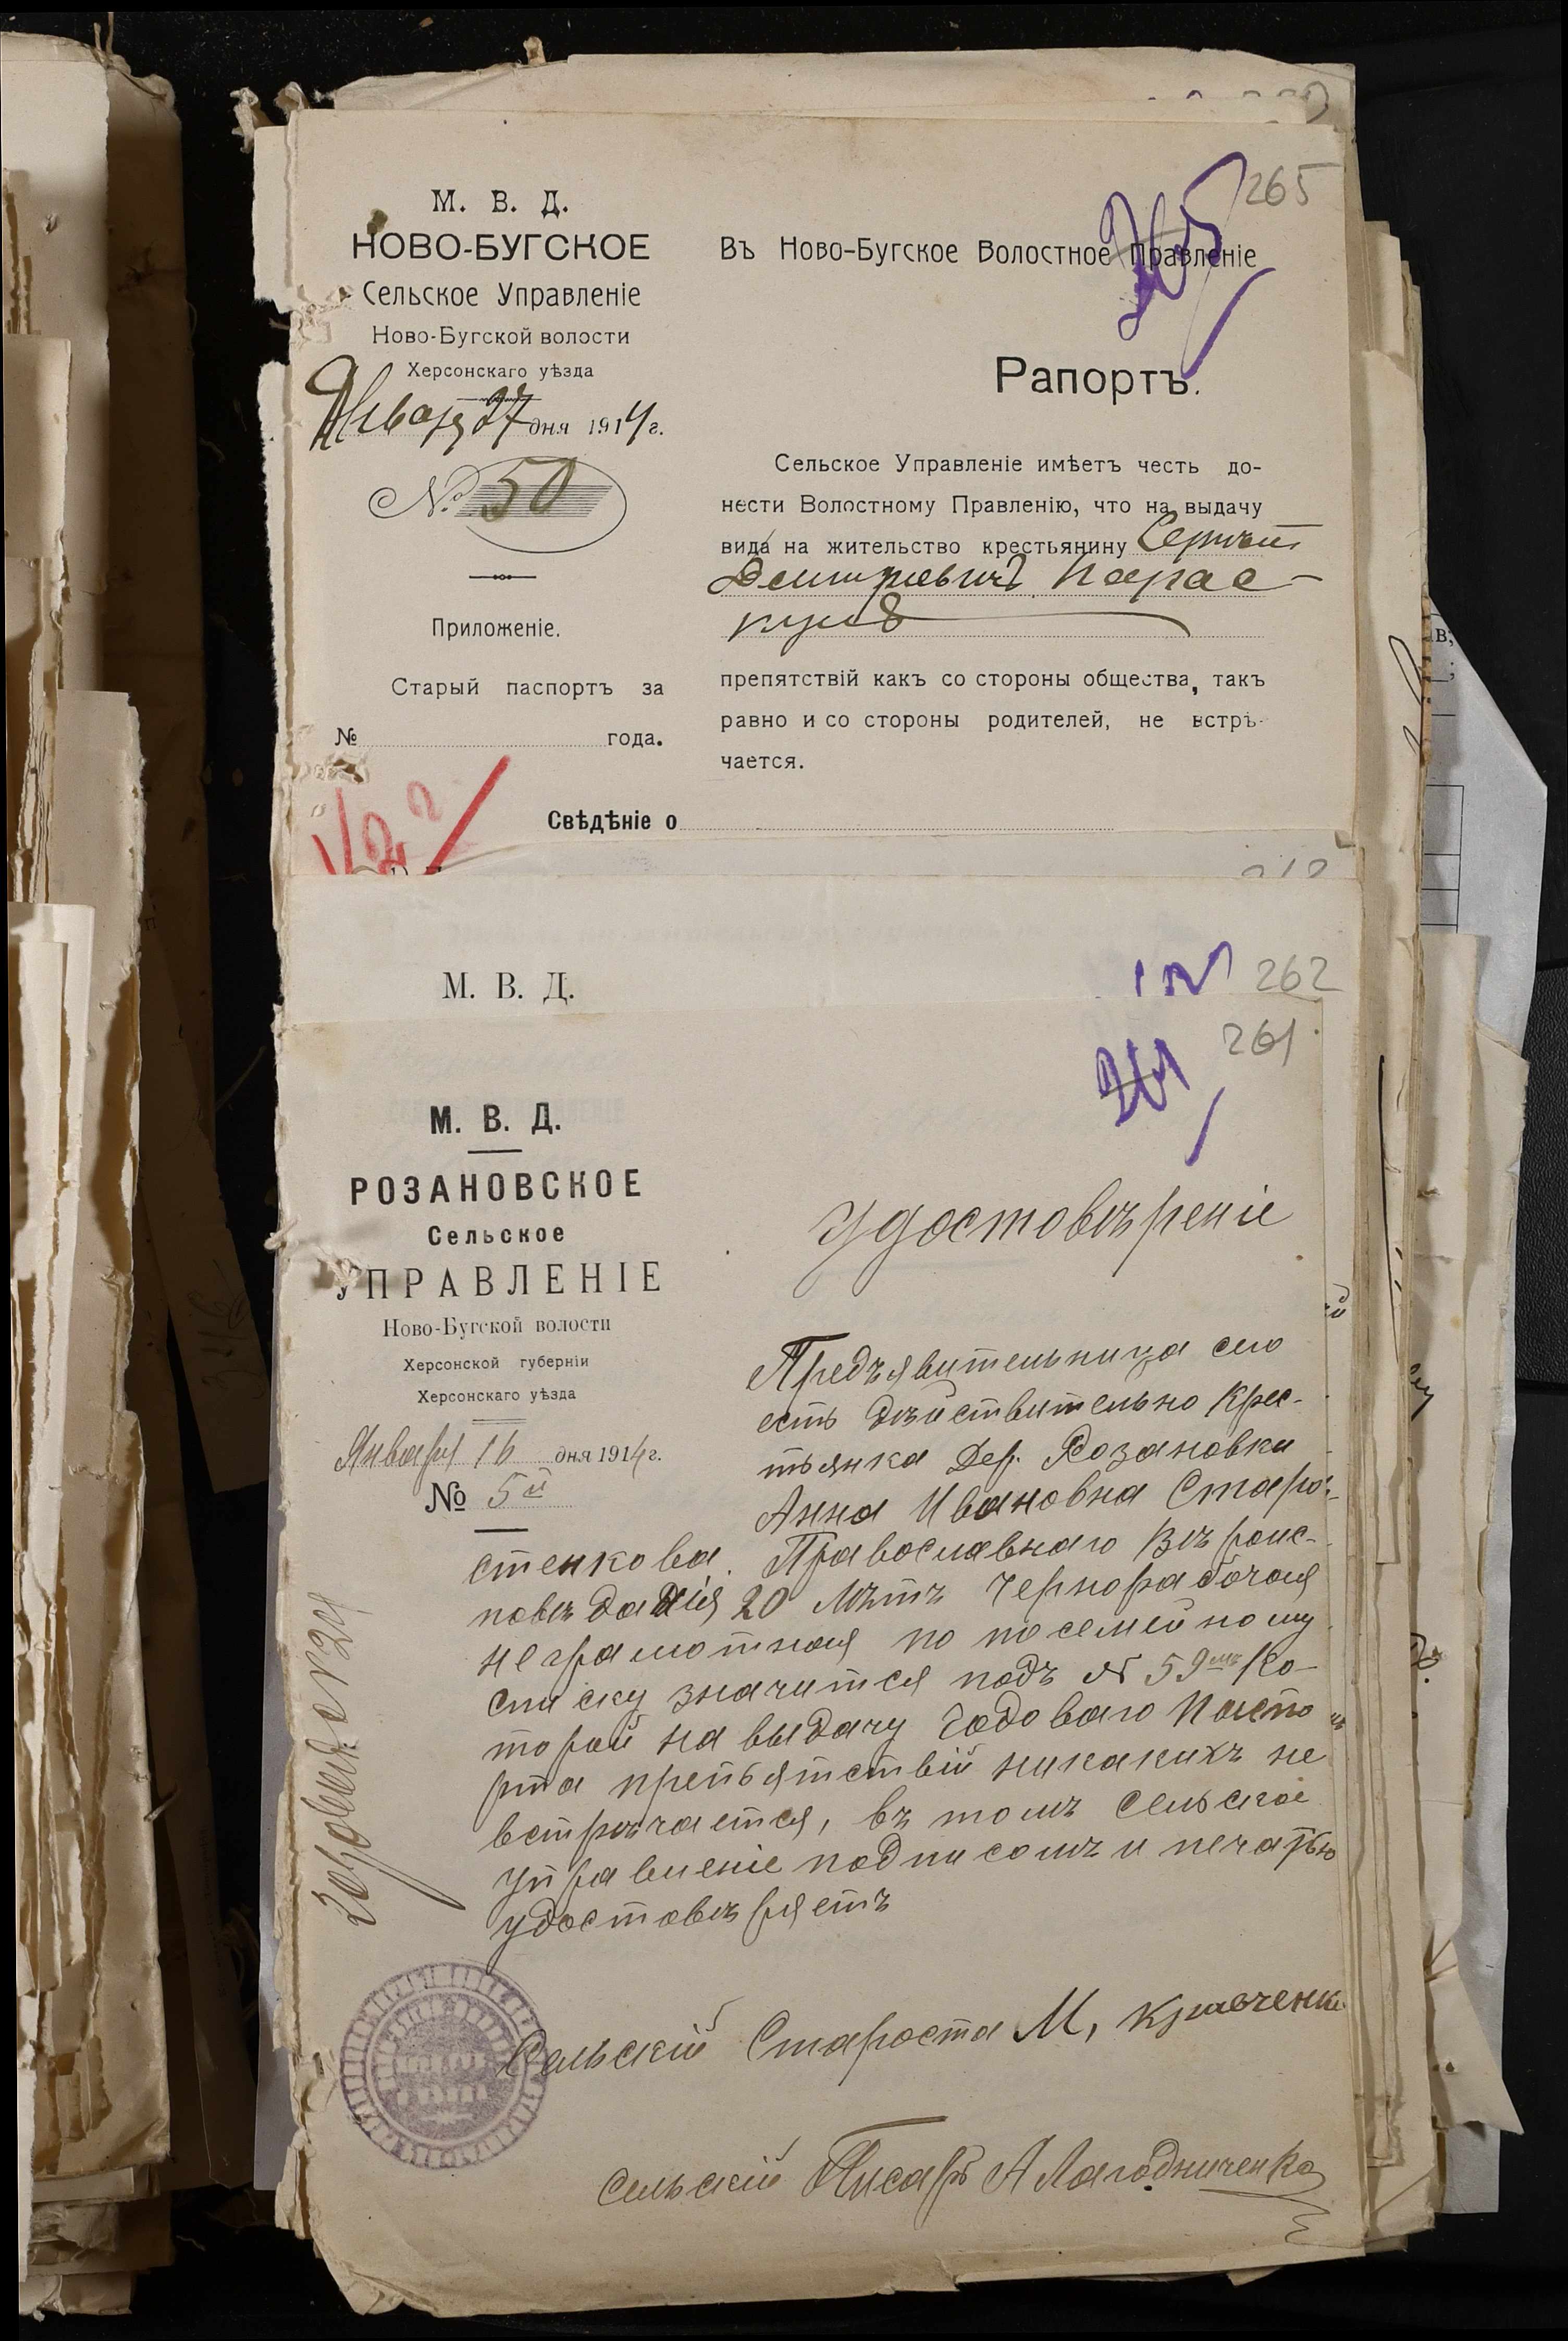 265
М. В. Д.
НОВО-БУГСКОЕ
Сельское Управленіе
Ново-Бугской волости
Херсонскаго уѣзда
Января 27 дня 1914 г.
№ 50
Приложеніе.
Старый паспортъ за
№ года.
Въ Ново-Бугское Волостное Правленіе
Рапортъ.
Сельское Управленіе имѣетъ честь до-
нести Волостному Правленію, что на выдачу
вида на жительство крестьянину
Дмитріевичъ
препятствій какъ со стороны общества, такъ
равно и со стороны родителей, не встрѣ-
чается.
Свѣдѣніе о
262
М. В. Д.
261
261
М. В. Д.
РОЗАНОВСКОЕ
Сельское
УПРАВЛЕНІЕ
Ново-Бугской волости
Херсонской губерніи
Херсонскаго уѣзда
Января 16 дня 1914 г.
№ 5й
Удостовѣреніе
Предъявительница сего
есть дѣйствительно крес-
тьянка Дер. Розановки
Анна Ивановна Старо-
стенкова. Православнаго Вѣроис-
повѣданія 20 Лѣтъ Чернорабочая
неграмотная по посемейному
списку значится подъ № 59мъ Ко-
торой на выдачу Годоваго Паспо
рта препятствій никакихъ не
встрѣчается, въ томъ Сельское
Управленіе подписомъ и печатью
удостовѣряетъ
Сельскій Староста М, Кравченко
Сельскій Писарь А Лагодниченко